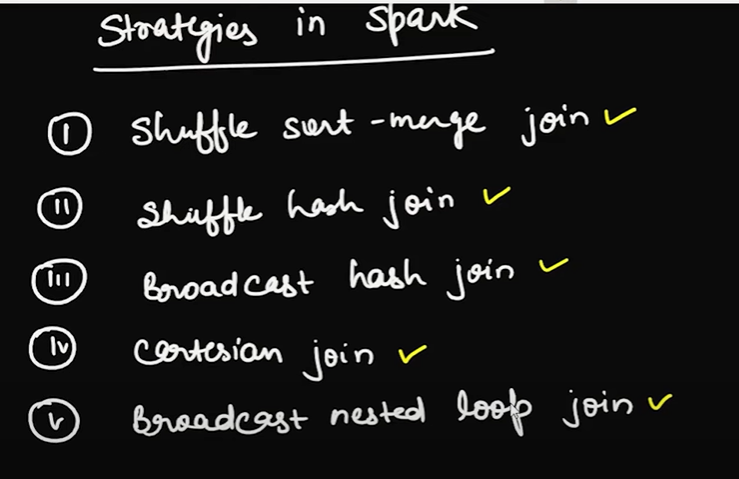 Strategies in Spark
(i) Shuffle sort-merge join ✓
(ii) Shuffle hash join ✓
(iii) Broadcast hash join ✓
(iv) Cartesian join ✓
(v) Broadcast nested loop join ✓